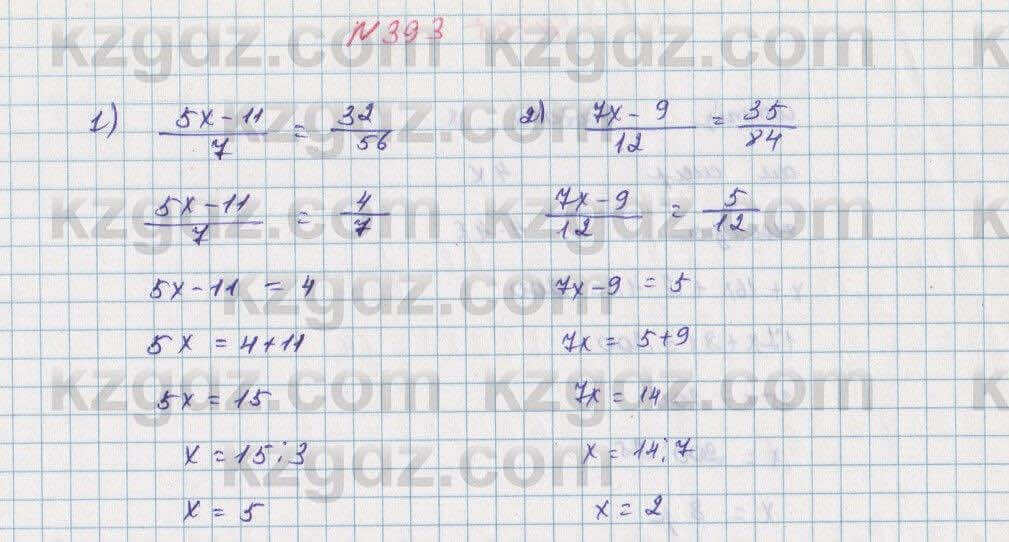 № 393
1) (5x - 11)/7 = 32/56
(5x - 11)/7 = 4/7
5x - 11 = 4
5x = 4 + 11
5x = 15
x = 15 : 3
x = 5
2) (7x - 9)/12 = 35/84
(7x - 9)/12 = 5/12
7x - 9 = 5
7x = 5 + 9
7x = 14
x = 14 : 7
x = 2
kzgdz.com kzgdz.com
kzgdz.com kzgdz.com
kzgdz.com kzgdz.com
kzgdz.com kzgdz.com
kzgdz.com kzgdz.com
kzgdz.com kzgdz.com